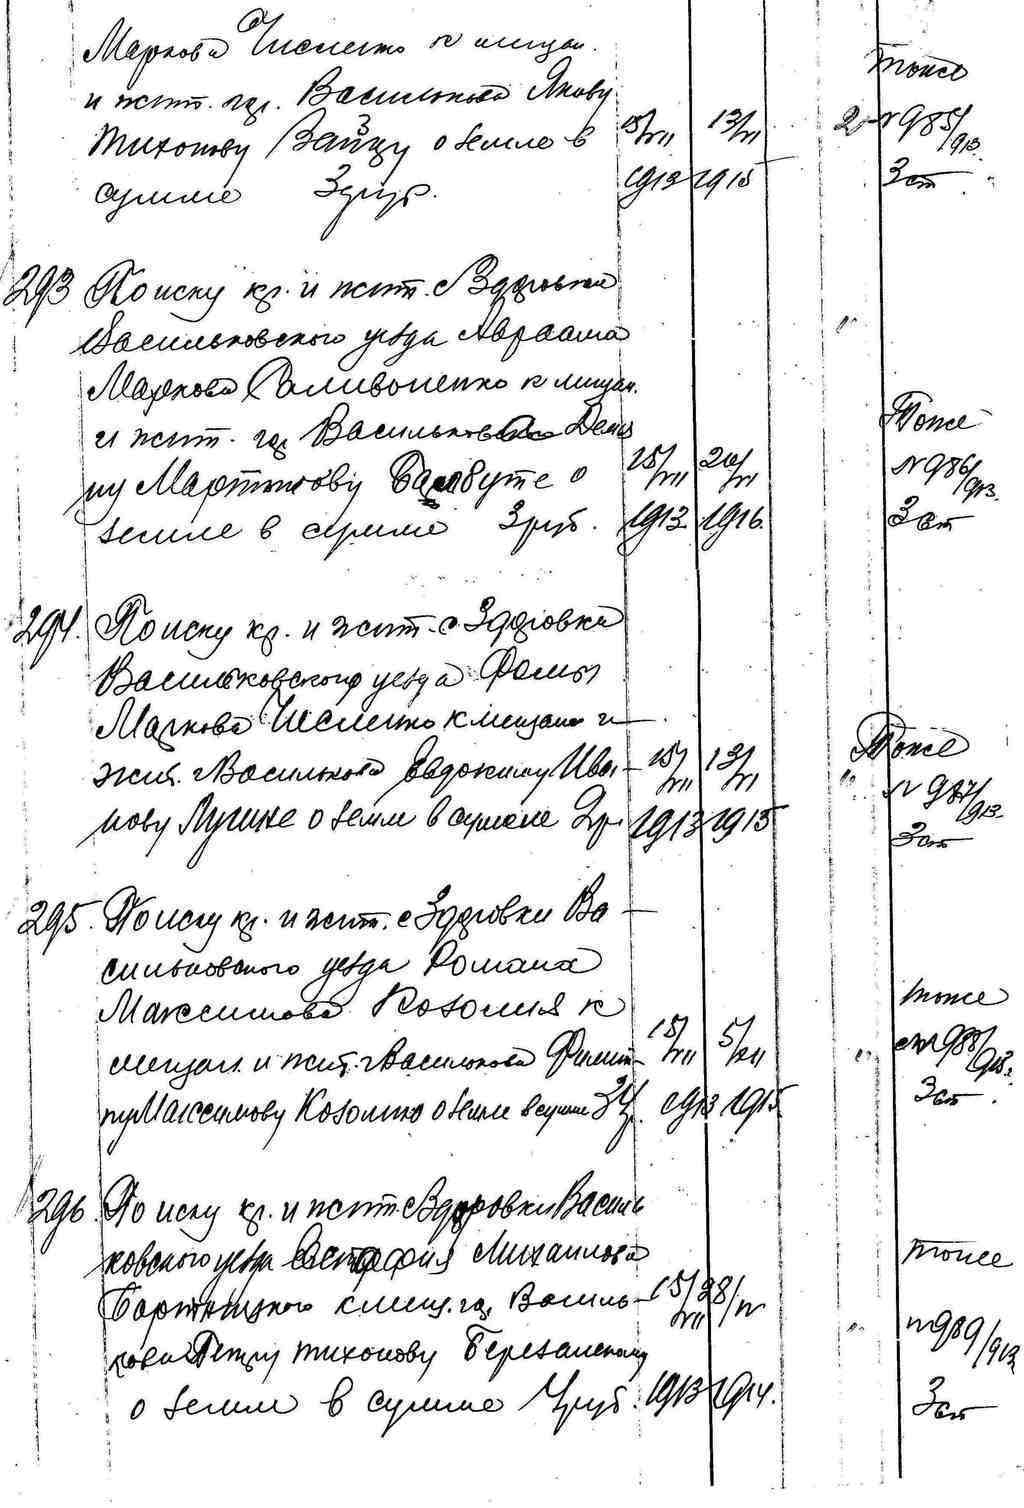 Маркова Численко к мещан.
и жит. гор. Василькова Якову
Тихонову о земле в
сумме 3 руб.
15/VII 1913
13/VI 1915
2
тоже
№ 985/913.
3 ст.
293 По иску кр. и жит. с Здоровки
Васильковского уезда Авраама
Маркова Саливоненко к мещан.
и жит. гор. Василькова Демья
ну Мартинову Барабуте о
земле в сумме 3 руб.
15/VII 1913.
20/VI 1916.
"
Тоже
№ 986/913.
3 ст
294. По иску кр. и жит. с Здоровки
Васильковского уезда Фомы
Маркова Численко к мещан и
жит. г Василькова Евдокиму Ива-
нову Лугине о земле в сумме 2 р.
15/VII 1913
13/VI 1915
"
Тоже
№ 987/913.
3 ст
295. По иску кр. и жит. с Здоровки Ва-
сильковского уезда Романа
Максимова Козолия к
мещан. и жит. г Василькова Филип-
пу Максимову Козолию о земле в сумме
15/VII 1913
5/XII 1915
"
тоже
№ 988/913.
3 ст.
296. По иску кр. и жит с Здоровки Василь
ковского уезда Евстафия Михайлова
Бартницкого к мещ. гор. Василь-
кова Петру Тихонову Березанскому
о земле в сумме руб.
15/VII 1913
28/IV 1914.
"
тоже
№ 989/913
3 ст